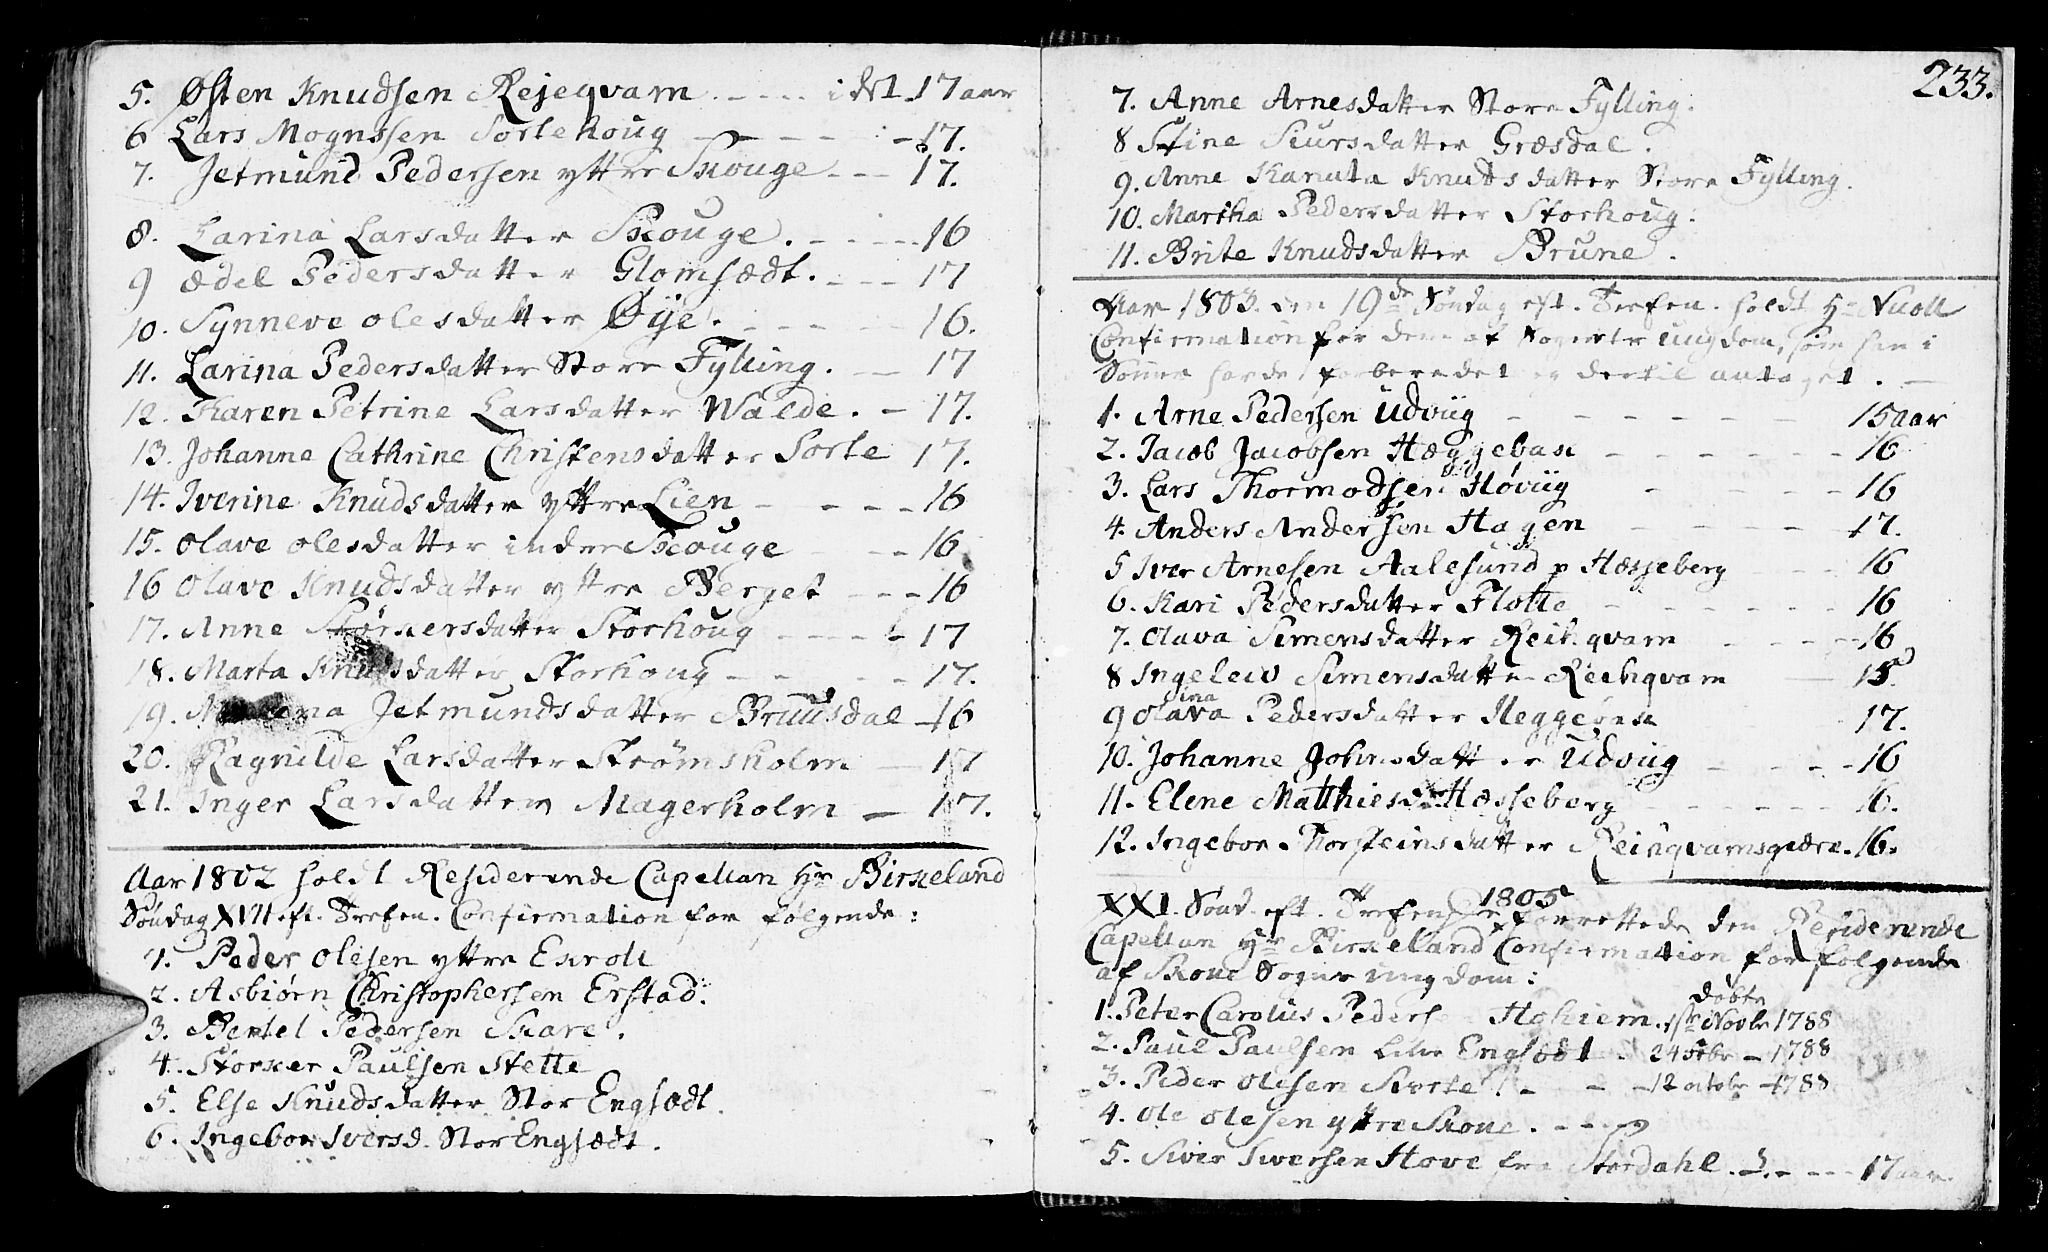 5. Østen Knudsen Rejeqvam . - - - i det 17 aar
6 Lars Mognssen Sortehoug - - - - 17.
7. Jetmund Pedersen yttre Skouge - - - 17.
8. Larina Larsdatter Skouge . - - - - 16
9 Ædel Pedersdatter Glomsædt. - - - 17
10. Synneve Olesdatter Øije . - - - - 16.
11. Larina Pedersdatter Store Fylling . - - 17
12. Karen Petrine Larsdatter Walde . - 17.
13. Johanne Cathrine Christensdatter Sorte 17.
14. Iverine Knudsdatter yttre Lien - - - - 16
15. Olave Olesdatter indre Skouge - - - 16
16 Olave Knudsdatter yttre Berget - - - 16
17. Anne Størkersdatter Storhoug - - - - 17
18. Marta Knudsdatter Storhoug - - - - 17.
19. Jetmundsdatter Bruusdal - 16
20. Ragnilde Larsdatter Strømsholm - 17
21. Inger Larsdatter Magerholm - 17.
Aar 1802 holdt Residerende Capellan Hr Birkeland
Søndag XVII. eft. Trefen. Confirmation for følgende:
1. Peder Olesen yttre Exroll
2. Asbiørn Christophersen Erstad.
3. Bertel Pedersen Skare.
4. Størker Paulsen Stette
5. Else Knudsdatter Stor Engsædt.
6. Ingebor Iversd. Stor Engsædt.
233.
7. Anne Arnesdatter Store Fylling.
8 Stine Siursdatter Græsdal.
9. Anne Kanuta Knudsdatter Store Fylling.
10. Martha Pedersdatter Storhoug.
11. Brite Knudsdatter Brune.
Aar 1803. den 19de Søndag eft. Trefen. holdt Hr
Confirmation for den af Sognets ungdom, som han i
Sommer havde forberedet og dertil antaget . -
1. Arne Pedersen Udviig - - - - - 15 aar
2. Jacob Jacobsen Hæggebak - - - - - - 16
3. Lars Thormodsen Høviig - - - - 16
4. Anders Andersen Hagen - - - - 17.
5 Iver Arnesen Aalesund p Hæsseberg - - - 16
6. Kari Pedersdatter Flotte - - - - - - 16
7. Olava Simensdatter Reihqvam - - - - - 16
8 Ingeleiv Simensdatter Reihqvam - - 15
ina
9 Olava Pedersdatter - - - 17.
10. Johanne Johnsdatter Udviig - - - - - 16
11. Elene Matthiesdr Hæsseberg - - - - - 16.
12. Ingebor Thorsteinsdatter Reihqvamsgjære. 16.
1805
XXI. Sønd. eft. Trefen forrettede den Residerende
Capellan Hr Birkeland Confirmation for følgende
af Skoue Sogns ungdom:
døbte
1. Peter Carolus Pedersen Hohiem. 1ste Novbr 1788
2. Paul Paulsen Lille Engsædt . 24 - 1788
3. Peder Olesen Skorte . - - - 12 octobr - 1788
4. Ole Olesen yttre Skoue . - - -
5. Siver Iversen Hove fra Stordahl . - - - 17 aar.